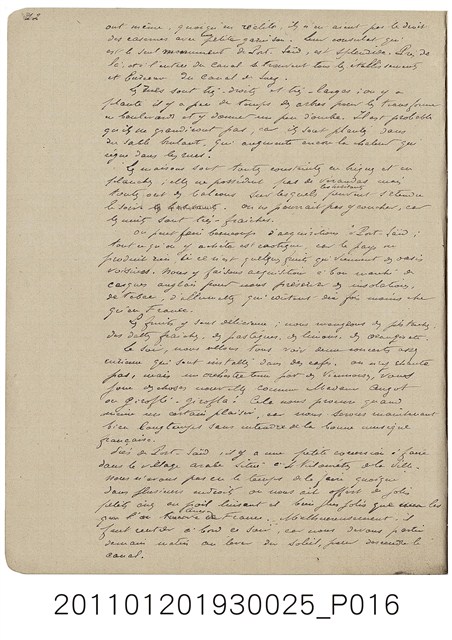 22
ont même, quoiqu'en réalité, ils n'en aient pas le droit
des casernes avec petite garnison. Leur consulat qui
est le seul monument de Port-Saïd, est splendide. Près de
là, et à l'entrée du canal se trouvent tous les établissements
et bureaux du canal de Suez.
Les rues sont très-droites et très-larges : on y a
planté il y a peu de temps des arbres pour les transformer
en boulevards et y donner un peu d'ombre. Il est probable
qu'ils ne grandiront pas, car ils sont plantés dans
du sable brûlant, qui augmente encore la chaleur qui
règne dans les rues.
Les maisons sont toutes construites en briques et en
planches, elles ne possèdent pas de verandas mais
toutes ont des balcons sur lesquels peuvent s'étendre
le soir les habitants. On ne pourrait pas y coucher, car
les nuits sont très-fraîches.
On peut faire beaucoup d'acquisitions à Port-Saïd ;
tout ce qu'on y achète est exotique, car le pays ne
produit rien si ce n'est quelques fruits qui viennent des oasis
voisines. Nous y faisons acquisition à bon marché de
casques anglais pour nous préserver des insolations,
de tabac, d'allumettes qui coûtent dix fois moins cher
qu'en France.
Les fruits y sont délicieux ; nous mangeons des pistaches,
des dattes fraîches, des pastèques, des limons, des oranges etc.
Le soir, nous allons tous voir deux concerts assez
curieux qui sont installés dans des cafés. On n'y chante
pas, mais un orchestre tenu par des Viennoises, vous
joue des choses nouvelles comme Madame Angot
ou Giroflé-Girofla ! Cela nous procure quand
même un certain plaisir, car nous serons maintenant
bien longtemps sans entendre de la bonne musique
française.
Près de Port-Saïd, il y a une petite excursion à faire
dans le village arabe situé à kilomètres de la ville.
Nous n'avons pas eu le temps de la faire quoique
dans plusieurs endroits on nous ait offert de jolis
petits ânes au poil luisant et bien plus jolis que ceux
que l'on trouve en France. Malheureusement, il
faut rentrer à bord ce soir, car nous devons partir
demain matin au lever du soleil, pour descendre le
canal.
201101201930025_P016